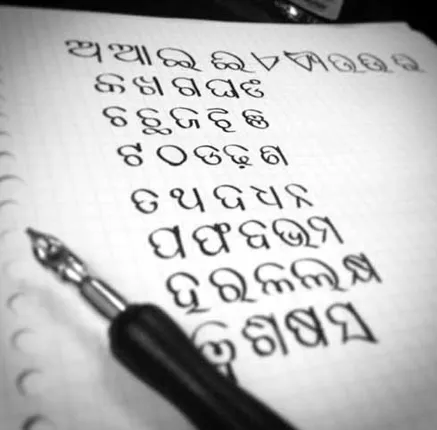 ଅ ଆ ଇ ଈ ଏ ଐ ଉ ଊ
କ ଖ ଗ ଘ ଙ
ଚ ଛ ଜ ଝ ଞ
ଟ ଠ ଡ ଢ଼ ଣ
ତ ଥ ଦ ଧ ନ
ପ ଫ ବ ଭ ମ
ହ ର ଳ ଲ କ୍ଷ
ଶ ଷ ସ